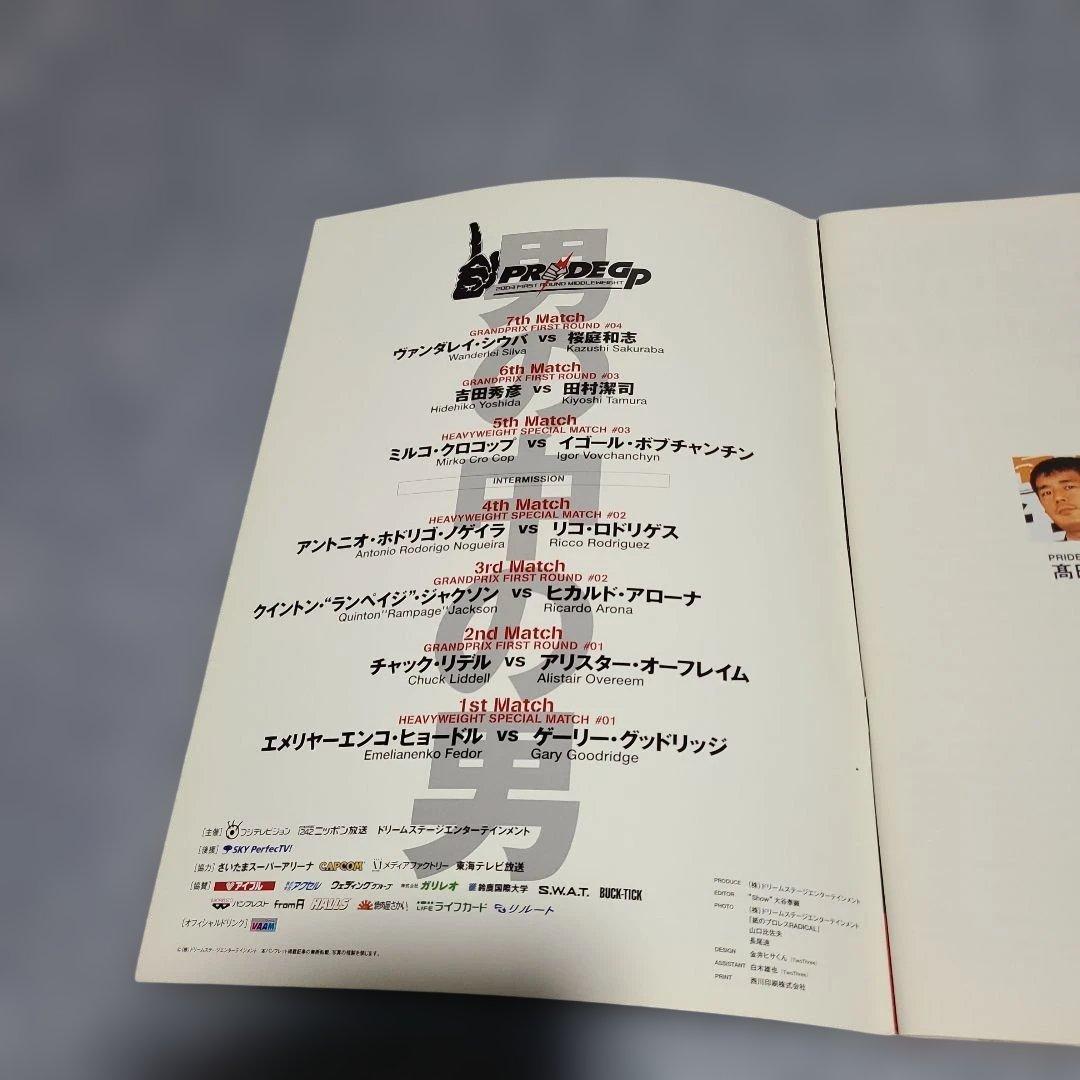 男の中の男
PRIDE GP
2003 FIRST ROUND MIDDLEWEIGHT
7th Match
GRANDPRIX FIRST ROUND #04
ヴァンダレイ・シウバ vs 桜庭和志
Wanderlei Silva Kazushi Sakuraba
6th Match
GRANDPRIX FIRST ROUND #03
吉田秀彦 vs 田村潔司
Hidehiko Yoshida Kiyoshi Tamura
5th Match
HEAVYWEIGHT SPECIAL MATCH #03
ミルコ・クロコップ vs イゴール・ボブチャンチン
Mirko Cro Cop Igor Vovchanchyn
INTERMISSION
4th Match
HEAVYWEIGHT SPECIAL MATCH #02
アントニオ・ホドリゴ・ノゲイラ vs リコ・ロドリゲス
Antonio Rodorigo Nogueira Ricco Rodriguez
3rd Match
GRANDPRIX FIRST ROUND #02
クイントン・“ランペイジ”・ジャクソン vs ヒカルド・アローナ
Quinton"Rampage"Jackson Ricardo Arona
2nd Match
GRANDPRIX FIRST ROUND #01
チャック・リデル vs アリスター・オーフレイム
Chuck Liddell Alistair Overeem
1st Match
HEAVYWEIGHT SPECIAL MATCH #01
エメリヤーエンコ・ヒョードル vs ゲーリー・グッドリッジ
Emelianenko Fedor Gary Goodridge
[主催] フジテレビジョン 1242 ニッポン放送 ドリームステージエンターテインメント
[後援] SKY PerfecTV!
[協力] さいたまスーパーアリーナ CAPCOM メディアファクトリー 東海テレビ放送
[協賛] アイフル アクセル ウェディンググループ 株式会社 ガリレオ 鈴鹿国際大学 S.W.A.T. BUCK-TICK
バンプレスト fromA HALLS 焼肉屋さかい LIFE ライフカード リルート
[オフィシャルドリンク] VAAM
©(株)ドリームステージエンターテインメント 本パンフレット掲載記事の無断転載、写真の複製を禁じます。
PRODUCE (株)ドリームステージエンターテインメント
EDITOR "Show" 大谷泰顕
PHOTO (株)ドリームステージエンターテインメント
「紙のプロレスRADICAL」
山口比佐夫
長尾迪
DESIGN 金井ヒサくん (TwoThree)
ASSISTANT 白木雄也 (TwoThree)
PRINT 西川印刷株式会社
PRIDE
髙田